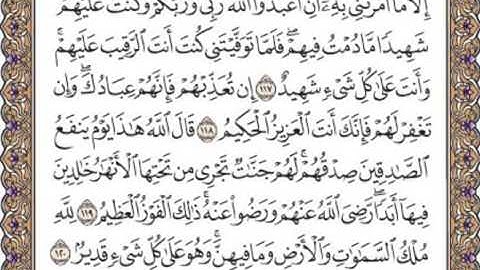 إِلَّا مَا أَمَرْتَنِي بِهِ أَنِ ٱعْبُدُوا ٱللَّهَ رَبِّي وَرَبَّكُمْ وَكُنتُ عَلَيْهِمْ
شَهِيدًا مَّا دُمْتُ فِيهِمْ فَلَمَّا تَوَفَّيْتَنِي كُنتَ أَنتَ ٱلرَّقِيبَ عَلَيْهِمْ
وَأَنتَ عَلَىٰ كُلِّ شَىْءٍ شَهِيدٌ ١١٧ إِن تُعَذِّبْهُمْ فَإِنَّهُمْ عِبَادُكَ وَإِن
تَغْفِرْ لَهُمْ فَإِنَّكَ أَنتَ ٱلْعَزِيزُ ٱلْحَكِيمُ ١١٨ قَالَ ٱللَّهُ هَٰذَا يَوْمُ يَنفَعُ
ٱلصَّٰدِقِينَ صِدْقُهُمْ لَهُمْ جَنَّٰتٌ تَجْرِى مِن تَحْتِهَا ٱلْأَنْهَٰرُ خَٰلِدِينَ
فِيهَا أَبَدًا رَّضِىَ ٱللَّهُ عَنْهُمْ وَرَضُوا عَنْهُ ذَٰلِكَ ٱلْفَوْزُ ٱلْعَظِيمُ ١١٩ لِلَّهِ
مُلْكُ ٱلسَّمَٰوَٰتِ وَٱلْأَرْضِ وَمَا فِيهِنَّ وَهُوَ عَلَىٰ كُلِّ شَىْءٍ قَدِيرٌ ١٢٠